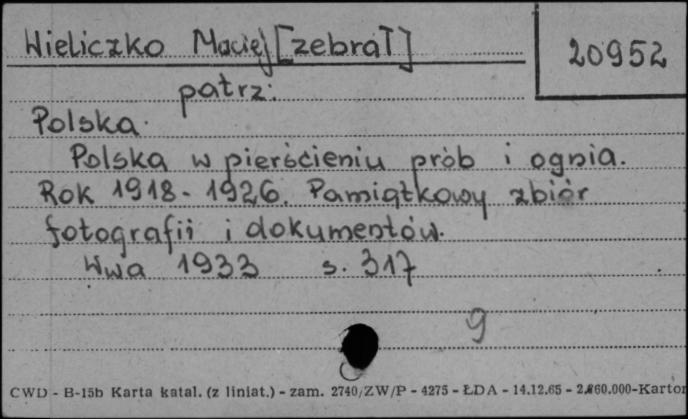 Wieliczko Maciej [zebrał]
20952
patrz:
Polska.
Polska w pierścieniu prób i ognia.
Rok 1918-1926. Pamiątkowy zbiór
fotografii i dokumentów.
Wwa 1933 s. 317
9
CWD - B-15b Karta katal. (z liniat.) - zam. 2740/ZW/P - 4275 - ŁDA - 14.12.65 - 2.260.000-Karton